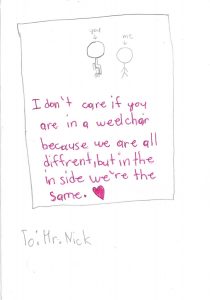 you me
I don't care if you
are in a weelchair
because we are all
diffrent, but in the
in side we're the
same.
To: Mr. Nick